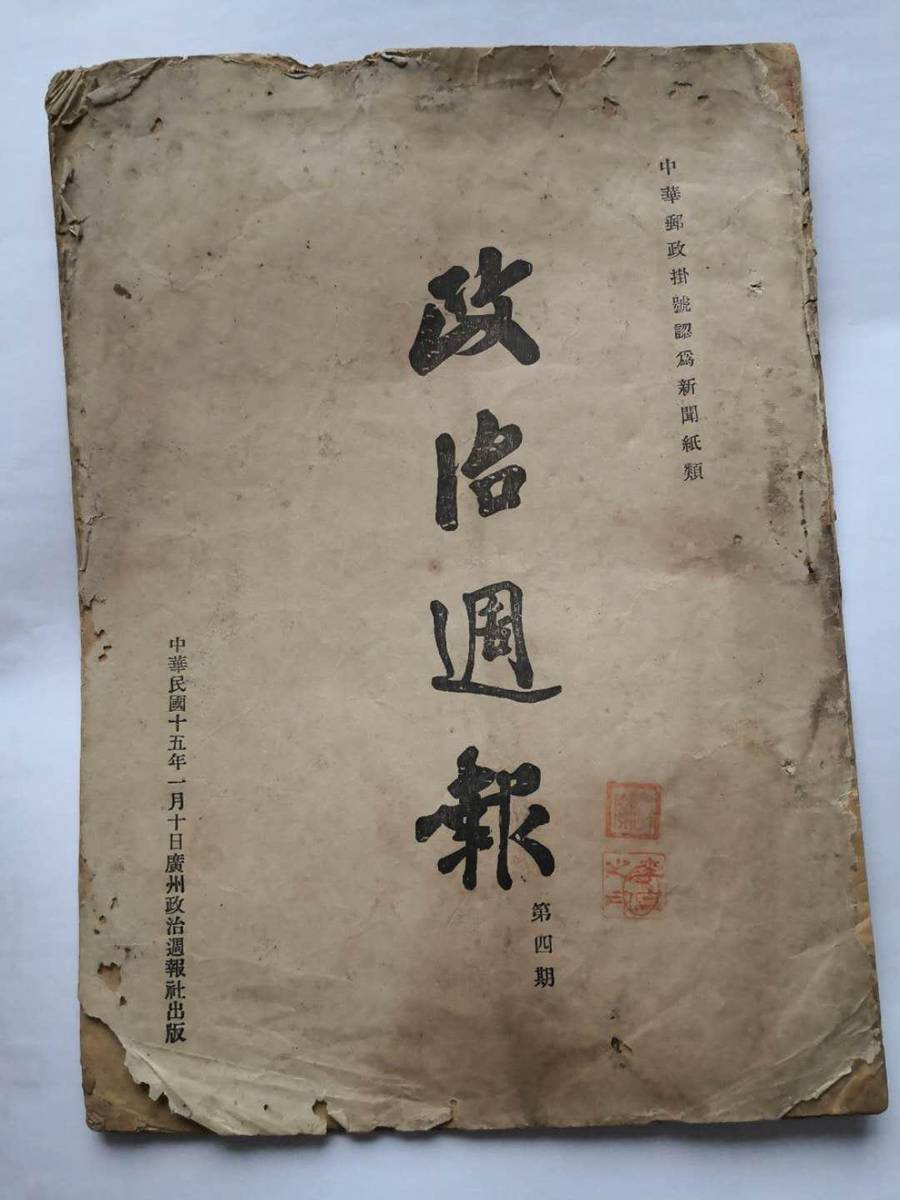 中華郵政掛號認爲新聞紙類
政治週報
第四期
中華民國十五年一月十日廣州政治週報社出版